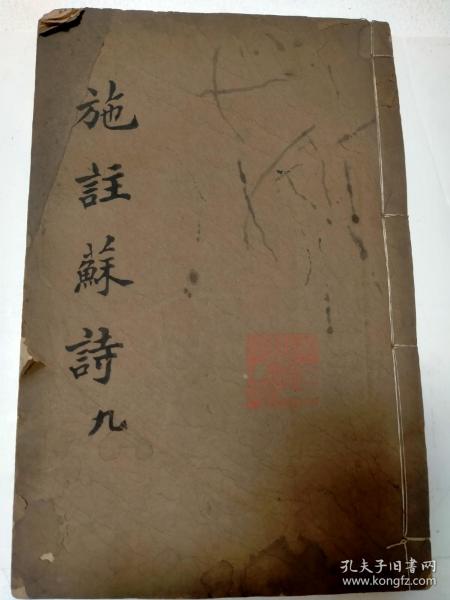 施註蘇詩 九
孔夫子旧书网
www.kongfz.com